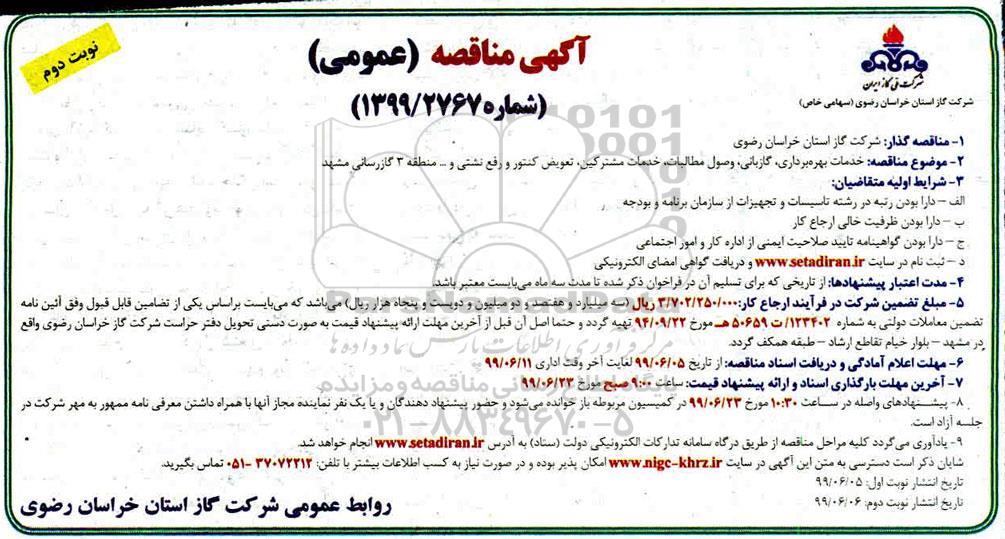 نوبت دوم
آگهی مناقصه (عمومی)
(شماره ۱۳۹۹/۲۷۶۷)
شرکت ملی گاز ایران
شرکت گاز استان خراسان رضوی (سهامی خاص)
۱- مناقصه گذار: شرکت گاز استان خراسان رضوی
۲- موضوع مناقصه: خدمات بهره‌برداری، گازبانی، وصول مطالبات، خدمات مشترکین، تعویض کنتور و رفع نشتی و ... منطقه ۳ گازرسانی مشهد
۳- شرایط اولیه متقاضیان:
الف – دارا بودن رتبه در رشته تاسیسات و تجهیزات از سازمان برنامه و بودجه
ب – دارا بودن ظرفیت خالی ارجاع کار
ج – دارا بودن گواهینامه تایید صلاحیت ایمنی از اداره کار و امور اجتماعی
د – ثبت نام در سایت www.setadiran.ir و دریافت گواهی امضای الکترونیکی
۴- مدت اعتبار پیشنهادها: از تاریخی که برای تسلیم آن در فراخوان ذکر شده تا مدت سه ماه می‌بایست معتبر باشد.
۵- مبلغ تضمین شرکت در فرآیند ارجاع کار: ۳/۷۰۲/۲۵۰/۰۰۰ ریال (سه میلیارد و هفتصد و دو میلیون و دویست و پنجاه هزار ریال) می‌باشد که می‌بایست براساس یکی از تضامین قابل قبول وفق آئین نامه
تضمین معاملات دولتی به شماره ۱۲۳۴۰۲/ت ۵۰۶۵۹ هـ مورخ ۹۴/۰۹/۲۲ تهیه گردد و حتما اصل آن قبل از آخرین مهلت ارائه پیشنهاد قیمت به صورت دستی تحویل دفتر حراست شرکت گاز خراسان رضوی واقع
در مشهد – بلوار خیام تقاطع ارشاد – طبقه همکف گردد.
۶- مهلت اعلام آمادگی و دریافت اسناد مناقصه: از تاریخ ۹۹/۰۶/۰۵ لغایت آخر وقت اداری ۹۹/۰۶/۱۱
۷- آخرین مهلت بارگذاری اسناد و ارائه پیشنهاد قیمت: ساعت ۹:۰۰ صبح مورخ ۹۹/۰۶/۲۳
۸- پیشنهادهای واصله در ساعت ۱۰:۳۰ مورخ ۹۹/۰۶/۲۳ در کمیسیون مربوطه باز خوانده می‌شود و حضور پیشنهاد دهندگان و یا یک نفر نماینده مجاز آنها با همراه داشتن معرفی نامه ممهور به مهر شرکت در
جلسه آزاد است.
۹- یادآوری می‌گردد کلیه مراحل مناقصه از طریق درگاه سامانه تدارکات الکترونیکی دولت (ستاد) به آدرس www.setadiran.ir انجام خواهد شد.
شایان ذکر است دسترسی به متن این آگهی در سایت www.nigc-khrz.ir امکان پذیر بوده و در صورت نیاز به کسب اطلاعات بیشتر با تلفن: ۳۷۰۷۲۲۱۲-۰۵۱ تماس بگیرید.
تاریخ انتشار نوبت اول: ۹۹/۰۶/۰۵
تاریخ انتشار نوبت دوم: ۹۹/۰۶/۰۶
روابط عمومی شرکت گاز استان خراسان رضوی
۰۲۱-۸۸۳۴۹۶۷۰-۵